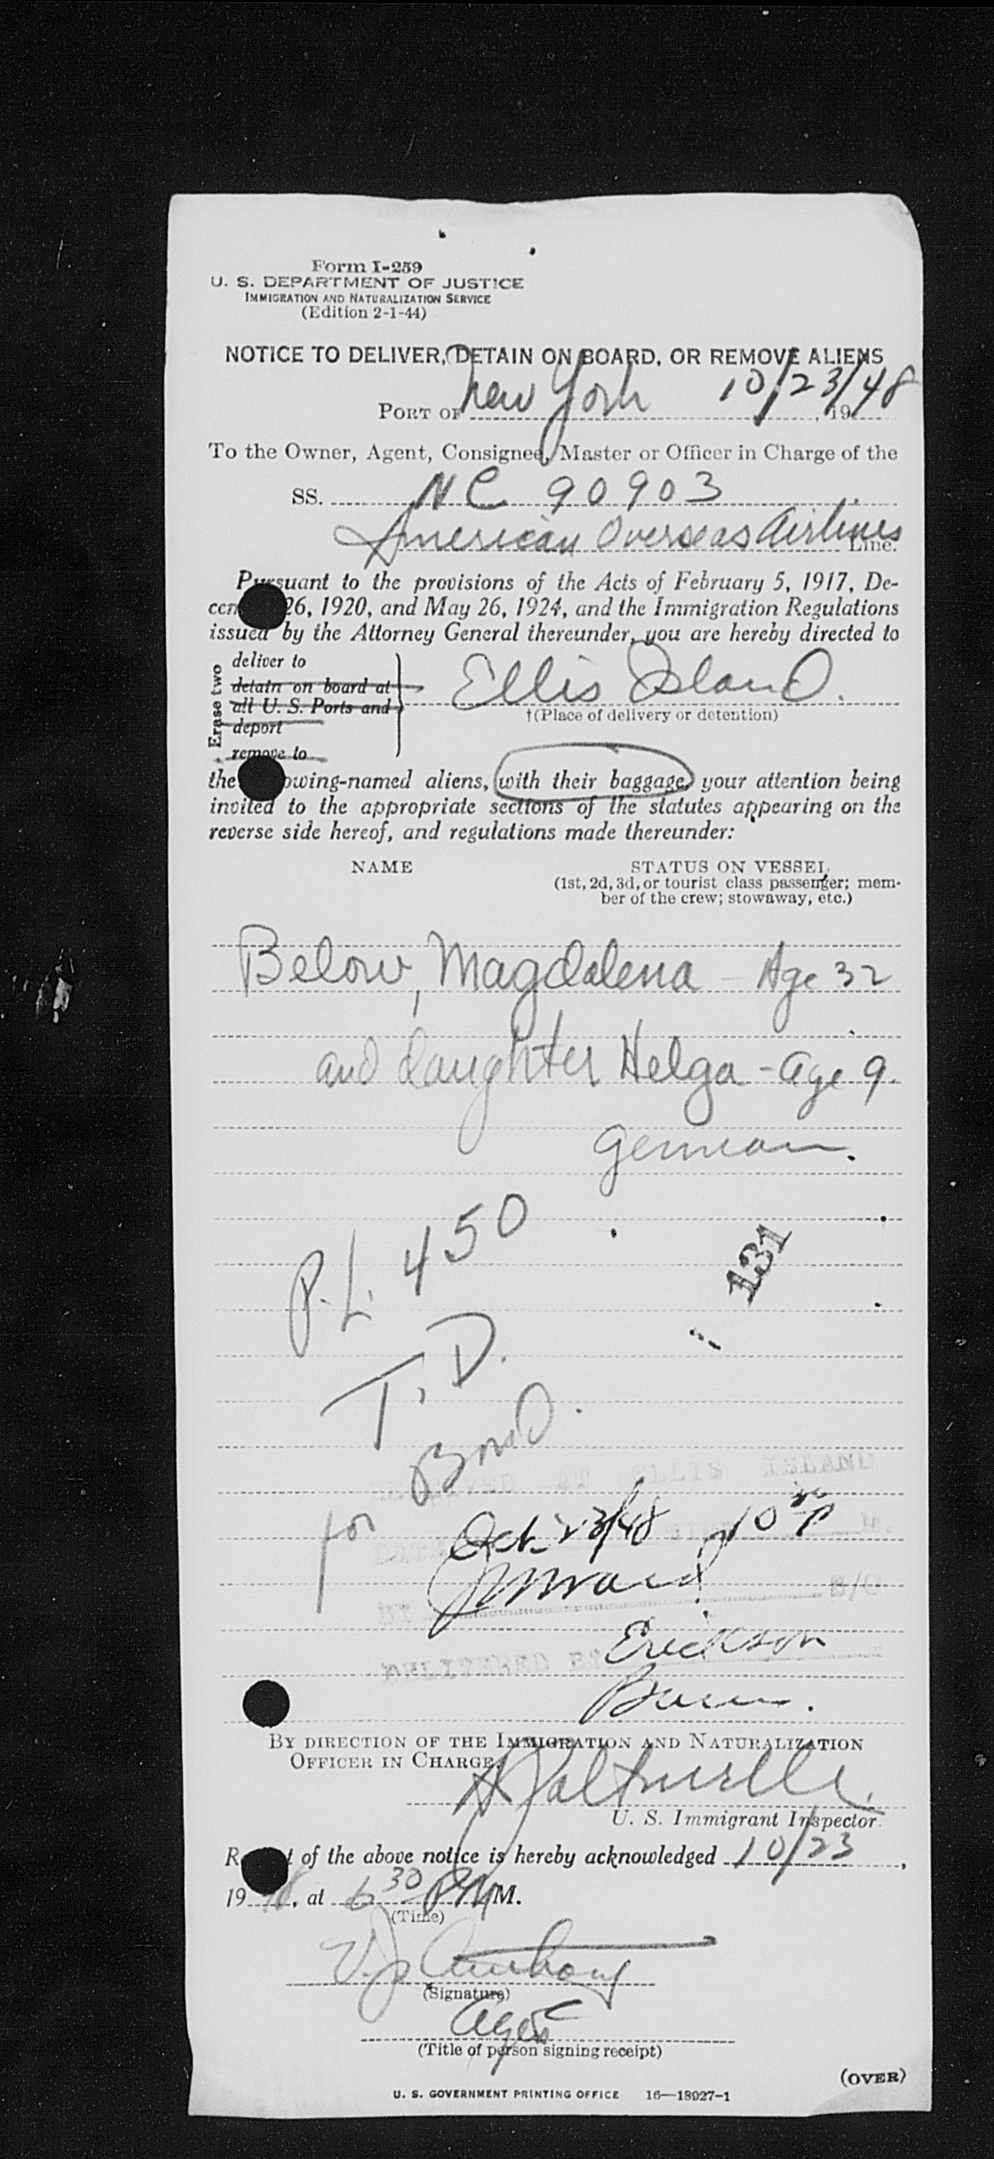 Form I-259
U. S. DEPARTMENT OF JUSTICE
IMMIGRATION AND NATURALIZATION SERVICE
(Edition 2-1-44)
NOTICE TO DELIVER, DETAIN ON BOARD, OR REMOVE ALIENS
PORT OF New York 10/23/48, 19
To the Owner, Agent, Consignee, Master or Officer in Charge of the
SS. NC 90903
American Overseas Airlines Line.
Pursuant to the provisions of the Acts of February 5, 1917, De-
cem 26, 1920, and May 26, 1924, and the Immigration Regulations
issued by the Attorney General thereunder, you are hereby directed to
Erase two
deliver to
detain on board at
all U. S. Ports and
deport
remove to
Ellis Island.
†(Place of delivery or detention)
the owing-named aliens, with their baggage, your attention being
invited to the appropriate sections of the statutes appearing on the
reverse side hereof, and regulations made thereunder:
NAME STATUS ON VESSEL
(1st, 2d, 3d, or tourist class passenger; mem-
ber of the crew; stowaway, etc.)
Below, Magdalena - Age 32
and daughter Helga - age 9.
German.
P.L. 450
131
T.D.
for Bond.
RECEIVED AT ELLIS ISLAND
Oct 23/48 10
DATE
BY S/O
DELIVERED BY Erickson
BY DIRECTION OF THE IMMIGRATION AND NATURALIZATION
OFFICER IN CHARGE.
U. S. Immigrant Inspector.
R t of the above notice is hereby acknowledged 10/23,
1948, at 6 30 PM M.
(Time)
V. J. Anthony
(Signature)
Agent
(Title of person signing receipt)
(OVER)
U. S. GOVERNMENT PRINTING OFFICE 16—18927-1